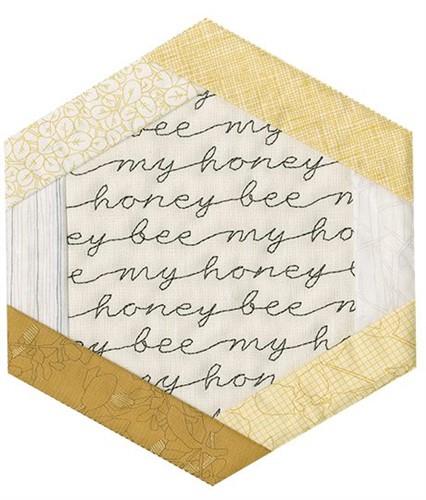 bee my
my honey
honey bee m
ey bee my ho
my honey
honey bee n
ey bee my h
my hon